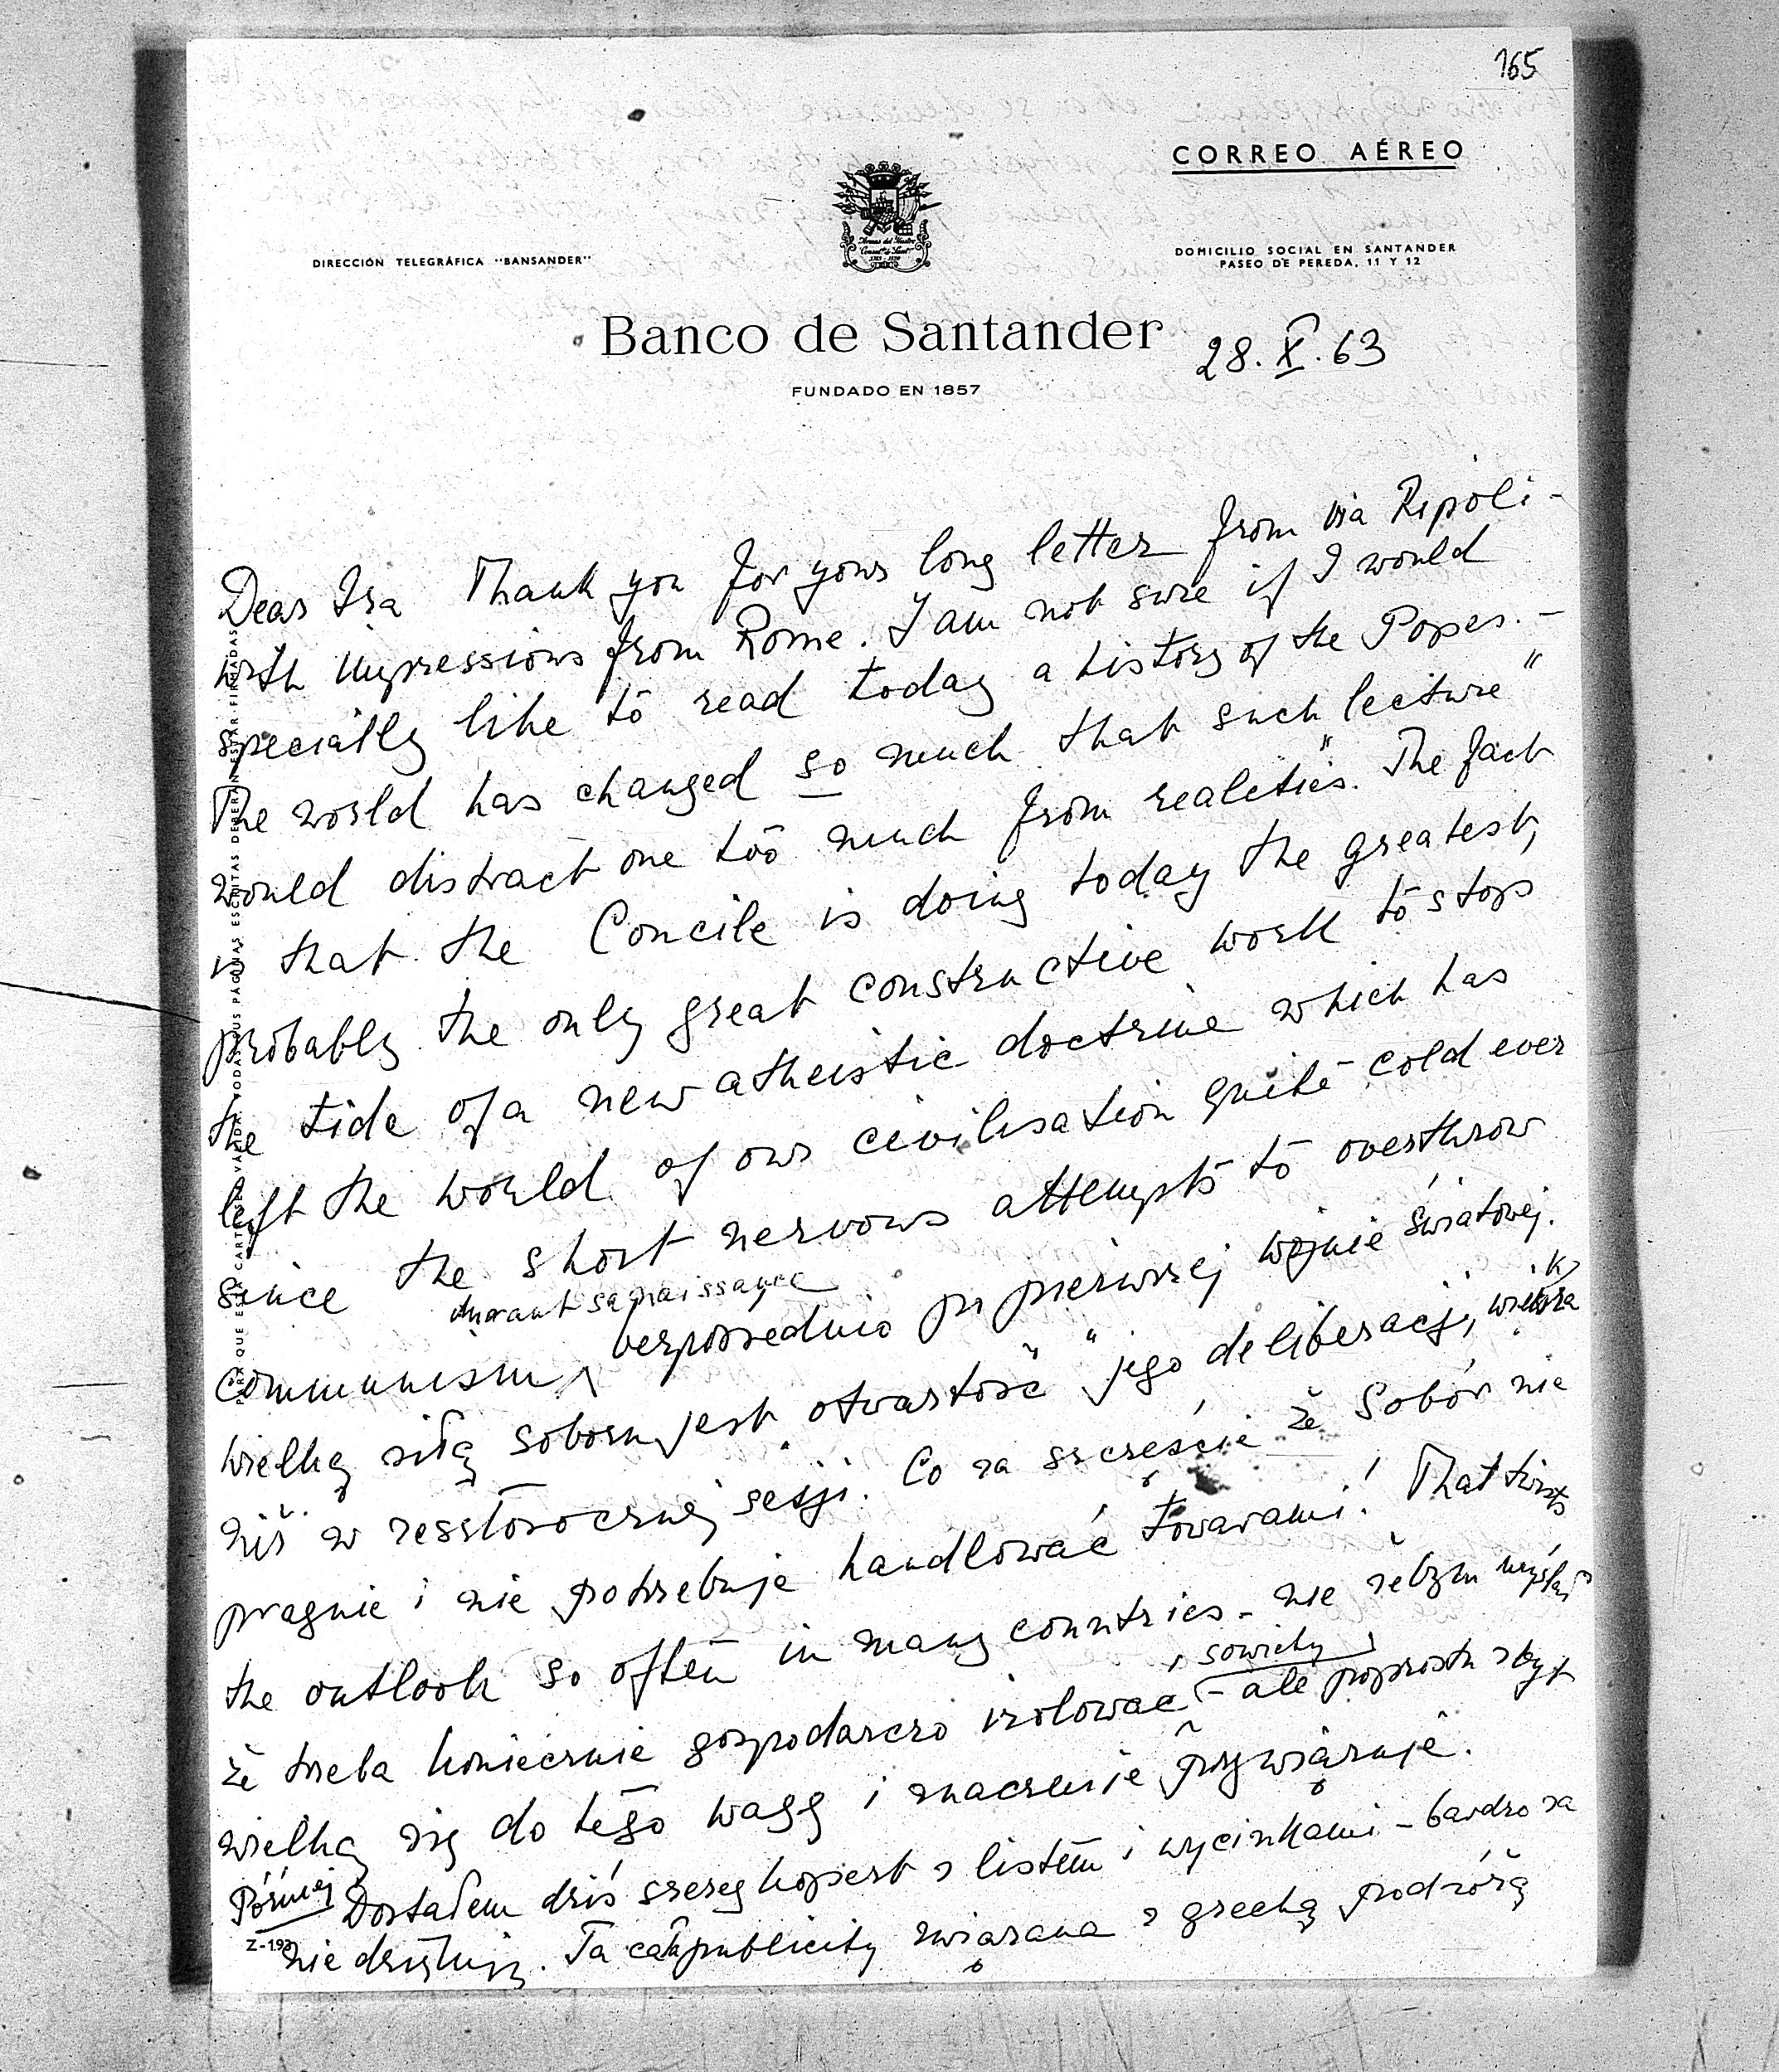 165
CORREO AÉREO
DIRECCIÓN TELEGRÁFICA "BANSANDER"
DOMICILIO SOCIAL EN SANTANDER
PASEO DE PEREDA, 11 Y 12
Banco de Santander
28.X.63
FUNDADO EN 1857
Dear Isa Thank you for your long letter from via Ripoli-
with impressions from Rome. I am not sure if I would
specially like to read today a history of the Popes.-
The world has changed so much that such "lecture"
would distract one too much from "realities". The fact
is that the Concile is doing today the greatest,
probably the only great constructive work to stop
the tide of a new atheistic doctrine which has
left the world of our civilisation quite cold ever
since the short nervous attempts to overthrow
durant sa naissance
communism bezpośrednio po pierwszej wojnie światowej.
Wielką siłą soboru jest "otwartość" jego deliberacji, większa
niż w zeszłorocznej sesji. Co za szczęście że Sobór nie
pragnie i nie potrzebuje handlować towarami! That twists
the outlook so often in many countries - nie żebym myślał
że trzeba koniecznie gospodarczo izolować sowiety - ale poprostu zbyt
wielką się do tego wagę i znaczenie przywiązuje.
Później Dostałem dziś szereg kopert z listem i wycinkami - bardzo za
nie dziękuję. Ta cała publicity związana z grecką podróżą
Z-193